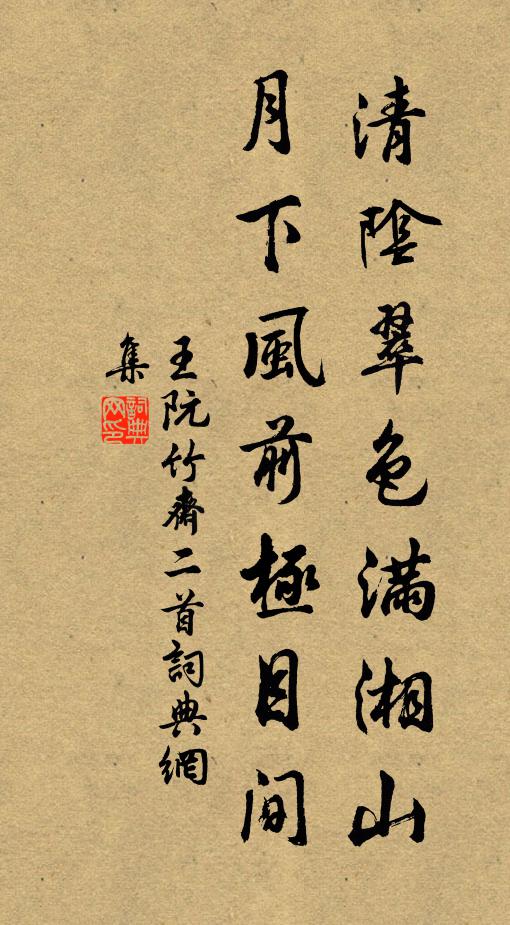 清陰翠色滿湘山
月下風前極目間
王阮竹齋二首詞典網
集
詞典网印